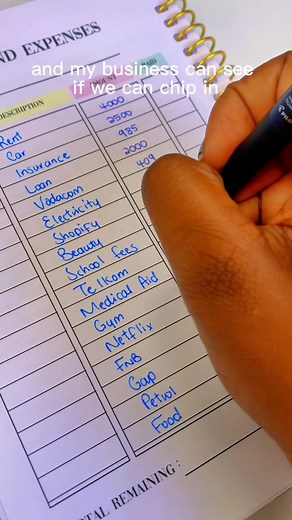 ND EXPENSES
and my business can see
if we can chip in
DESCRIPTION
AMOUNT
PAID
Rent 4000
Car 2500
Insurance 985
Loan 2000
Vodacom 409
Electricity
Shopify
Beauty
School fees
Telkom
Medical Aid
Gym
Netflix
FNB
Gap
Petrol
Food
TAL REMAINING: